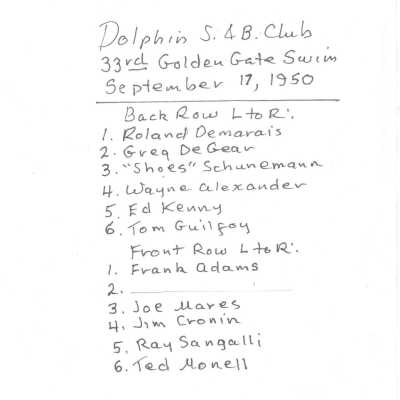 Dolphin S. & B. Club
33rd Golden Gate Swim
September 17, 1950
Back Row L to R:
1. Roland Demarais
2. Greg De Gear
3. "Shoes" Schunemann
4. Wayne Alexander
5. Ed Kenny
6. Tom Guilfoy
Front Row L to R:
1. Frank Adams
2.
3. Joe Mares
4. Jim Cronin
5. Ray Sangalli
6. Ted Monell